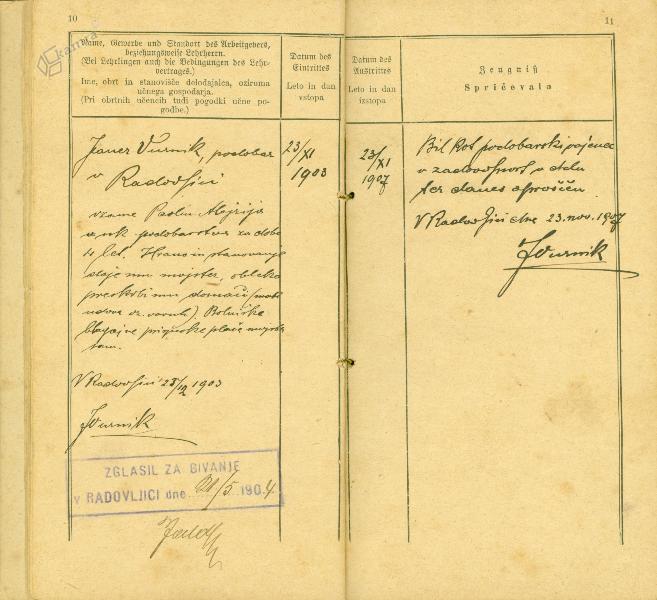 10
Name, Gewerbe und Standort des Arbeitgebers,
beziehungsweise Lehrherrn.
(Bei Lehrlingen auch die Bedingungen des Lehr-
vertrages.)
Ime, obrt in stanovišče delodajalca, oziroma
učnega gospodarja.
(Pri obrtnih učencih tudi pogodki učne po-
godbe.)
Datum des
Eintrittes
Leto in dan
vstopa
Janez Vurnik, podobar
v Radovljici
23/XI
1903
vzame Pavlin Alojzija
v uk podobarstva za dobo
4 let. Hrano in stanovanje
daje mu mojster, obleko
preskrbi mu domači
Bolniške
blagajne prispevke plača mojster
sam.
V Radovljici 23/12 1903
JVurnik
ZGLASIL ZA BIVANJE
v RADOVLJICI dne 21/5 1904
11
Datum des
Austrittes
Leto in dan
izstopa
Zeugniß
Spričevalo
23/XI
1907
Bil kot podobarski vajenec
v zadovoljnost v delu
ter danes oproščen
V Radovljici dne 23. nov. 1907
JVurnik
kamra